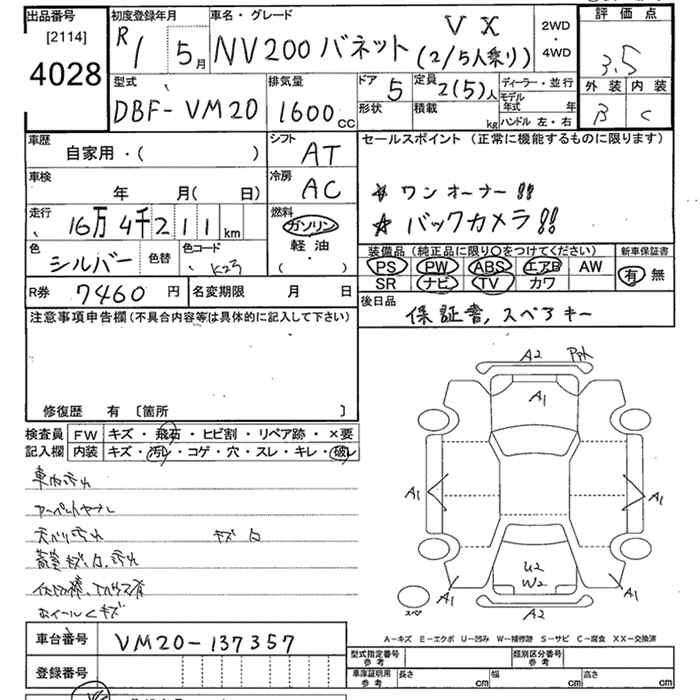 出品番号 初度登録年月 車名・グレード 評価点
[2114] R1 5月 NV200 バネット VX (2/5人乗り) 2WD・4WD 3.5
4028 外装 内装
型式 排気量 ドア 5 定員 2(5)人 ディーラー・並行 B C
DBF-VM20 1600cc 形状 積載 kg モデル年式 年 ハンドル 左・右
車歴 シフト セールスポイント (正常に機能するものに限ります)
自家用・( ) AT
車検 冷房 ★ ワンオーナー!!
年 月( 日) AC
走行 燃料 ★ バックカメラ!!
16万4千211km ガソリン
色 色替 色コード 軽油 装備品 (純正品に限り○をつけてください) 新車保証書
シルバー K23 ・( ) PS PW ABS エアB AW 有 無
SR ナビ TV カワ
R券 7460円 名変期限 月 日 後日品
保証書, スペアキー
注意事項申告欄(不具合内容等は具体的に記入して下さい)
A2
A1
修復歴 有 〔箇所 〕
検査員 FW キズ・飛石・ヒビ割・リペア跡・×要
記入欄 内装 キズ・汚レ・コゲ・穴・スレ・キレ・破レ
車内汚れ
A1 A1
天バリ汚れ キズ
U2
W2
A1 A1
スペア
A2
A-キズ E-エクボ U-凹み W-補修跡 S-サビ C-腐食 XX-交換済
車台番号 VM20-137357
型式指定番号 参考 類別区分番号 参考
登録番号 車庫証明用 参考 長さ cm 幅 cm 高さ cm